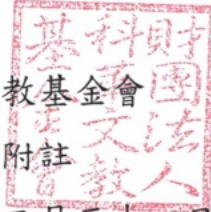 財團法人
科
文教
基金會
教基金會
附註